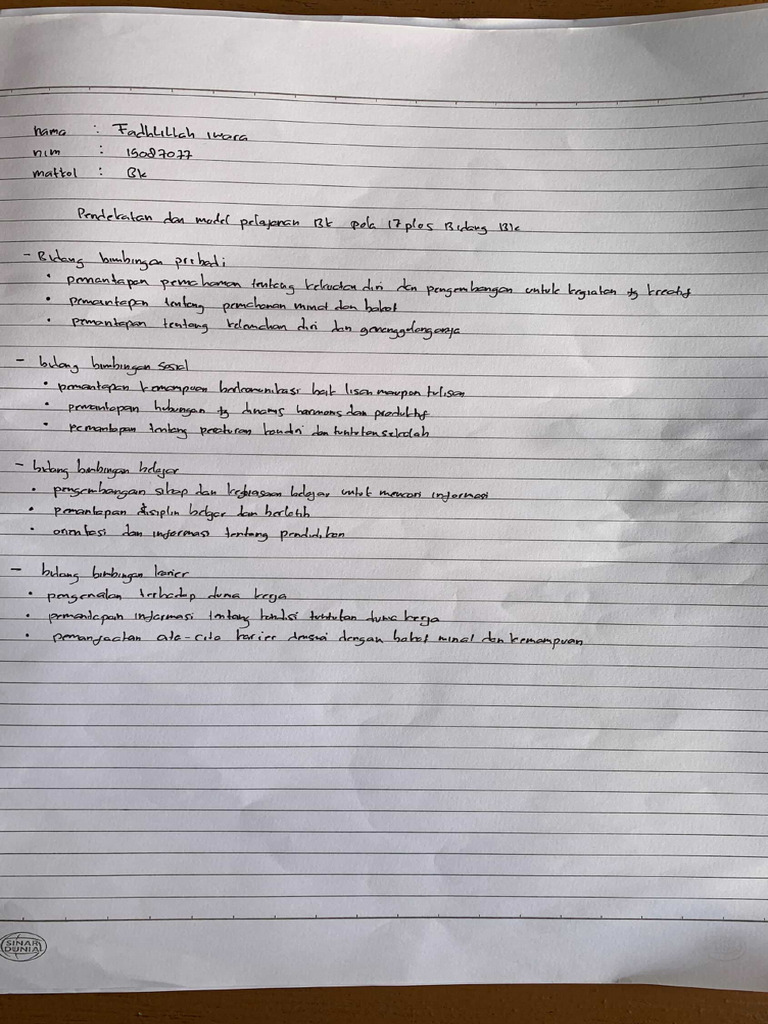 nama : Fadhlillah iwara
nim : 15027077
matkul : Bk
Pendekatan dan model pelajanan Bk pola 17 plus Bidang Bk
- Bidang bimbingan pribadi
• pemantapan pemahaman tentang kekuatan diri dan pengembangan untuk kegiatan yg kreatif
• pemantapan tentang pemahaman minat dan bakat
• pemantapan tentang kelemahan diri dan
- bidang bimbingan sosial
• pemantapan kemampuan berkomunikasi baik lisan maupun tulisan
• pemantapan hubungan yg dinamis harmonis dan produktif
• pemantapan tentang peraturan kondisi dan tuntutan sekolah
- bidang bimbingan belajar
• pengembangan sikap dan kebiasaan belajar untuk mencari informasi
• pemantapan disiplin belajar dan berlatih
• orientasi dan informasi tentang pendidikan
- bidang bimbingan karier
• pengenalan terhadap dunia kerja
• pemantapan informasi tentang kondisi tuntutan dunia kerja
• cita-cita karier sesuai dengan bakat minat dan kemampuan
SINAR
DUNIA